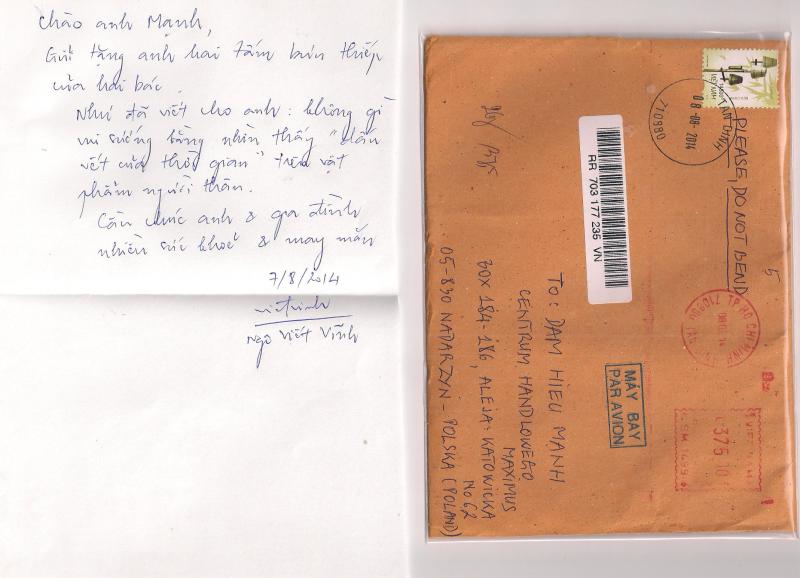 Chào anh Mạnh,
Gửi tặng anh hai tấm bưu thiếp
của hai bác.
Như đã viết cho anh: không gì
vui sướng bằng nhìn thấy "dấu
vết của thời gian" trên vật
phẩm người thân.
Cầu chúc anh & gia đình
nhiều sức khoẻ & may mắn
7/8/2014
Ngô Viết Vĩnh
VIỆT NAM
TÂN ĐỊNH
08-08-2014
710990
PLEASE, DO NOT BEND
5
RR 703 177 235 VN
TP HO CHI MINH
MÁY BAY
PAR AVION
375 10
To: DAM HIEU MANH
CENTRUM HANDLOWEGO
MAXIMUS
BOX 184-186, ALEJA: KATOWICKA
No 62
05-830 NADARZYN - POLSKA (POLAND)